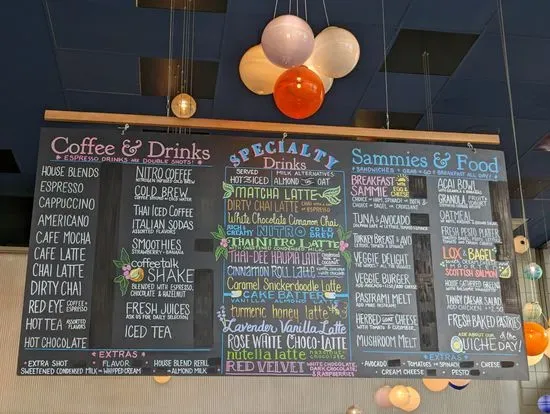 Coffee & Drinks
ESPRESSO DRINKS ARE DOUBLE SHOTS!
HOUSE BLENDS
ESPRESSO
CAPPUCCINO
AMERICANO
CAFE MOCHA
CAFE LATTE
CHAI LATTE
DIRTY CHAI
RED EYE COFFEE + ESPRESSO
HOT TEA ASSORTED FLAVORS
HOT CHOCOLATE
NITRO COFFEE
COLD BREW
Thai Iced Coffee
ITALIAN SODAS
ASSORTED FLAVORS
SMOOTHIES
STRAWBERRY · BANANA
coffeetalk SHAKE
BLENDED WITH ESPRESSO, CHOCOLATE & HAZELNUT
FRESH JUICES
ASK US FOR DAILY SELECTION
ICED TEA
EXTRAS
EXTRA SHOT
FLAVOR
HOUSE BLEND REFILL
SWEETENED CONDENSED MILK
WHIPPED CREAM
ALMOND MILK
SPECIALTY
Drinks
SERVED HOT OR ICED
MILK ALTERNATIVES
ALMOND OAT
MATCHA LATTE
DIRTY CHAI LATTE
White Chocolate Cinnamon Chai
RICH CREAMY NITRO COLD BREW
THAI NITRO LATTE
THAI-DEE HAUPIA LATTE
CINNAMON ROLL LATTE
Caramel Snickerdoodle Latte
CAKE BATTER
VANILLA ALMOND LATTE
turmeric honey latte
Lavender Vanilla Latte
ROSE WHITE CHOCO-LATTE
nutella latte hazelnut chocolate
RED VELVET WHITE CHOCOLATE, DARK CHOCOLATE, & RASPBERRIES
Sammies & Food
SANDWICHES + GRAB + GO & BREAKFAST ALL DAY!
BREAKFAST SAMMIE
TUNA & AVOCADO
TURKEY BREAST & AVO
VEGGIE DELIGHT
VEGGIE BURGER
PASTRAMI MELT
HERBED GOAT CHEESE
WITH TOMATO & CUCUMBER
MUSHROOM MELT
ACAI BOWL
GRANOLA
OATMEAL
FRESH PESTO PLATER
LOX & BAGEL
SCOTTISH SALMON
HOUSE SALAD
TANGY CAESAR SALAD
ADD CHICKEN
FRESH BAKED PASTRIES
ASK ABOUT OUR
QUICHE OF THE DAY!
EXTRAS
AVOCADO
TOMATOES
CHEESE
CREAM CHEESE
PESTO